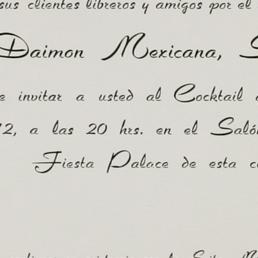 sus clientes libreros y amigos por el
Daimon Mexicana, S
e invitar a usted al Cocktail
12, a las 20 hrs. en el Saló
Fiesta Palace de esta c